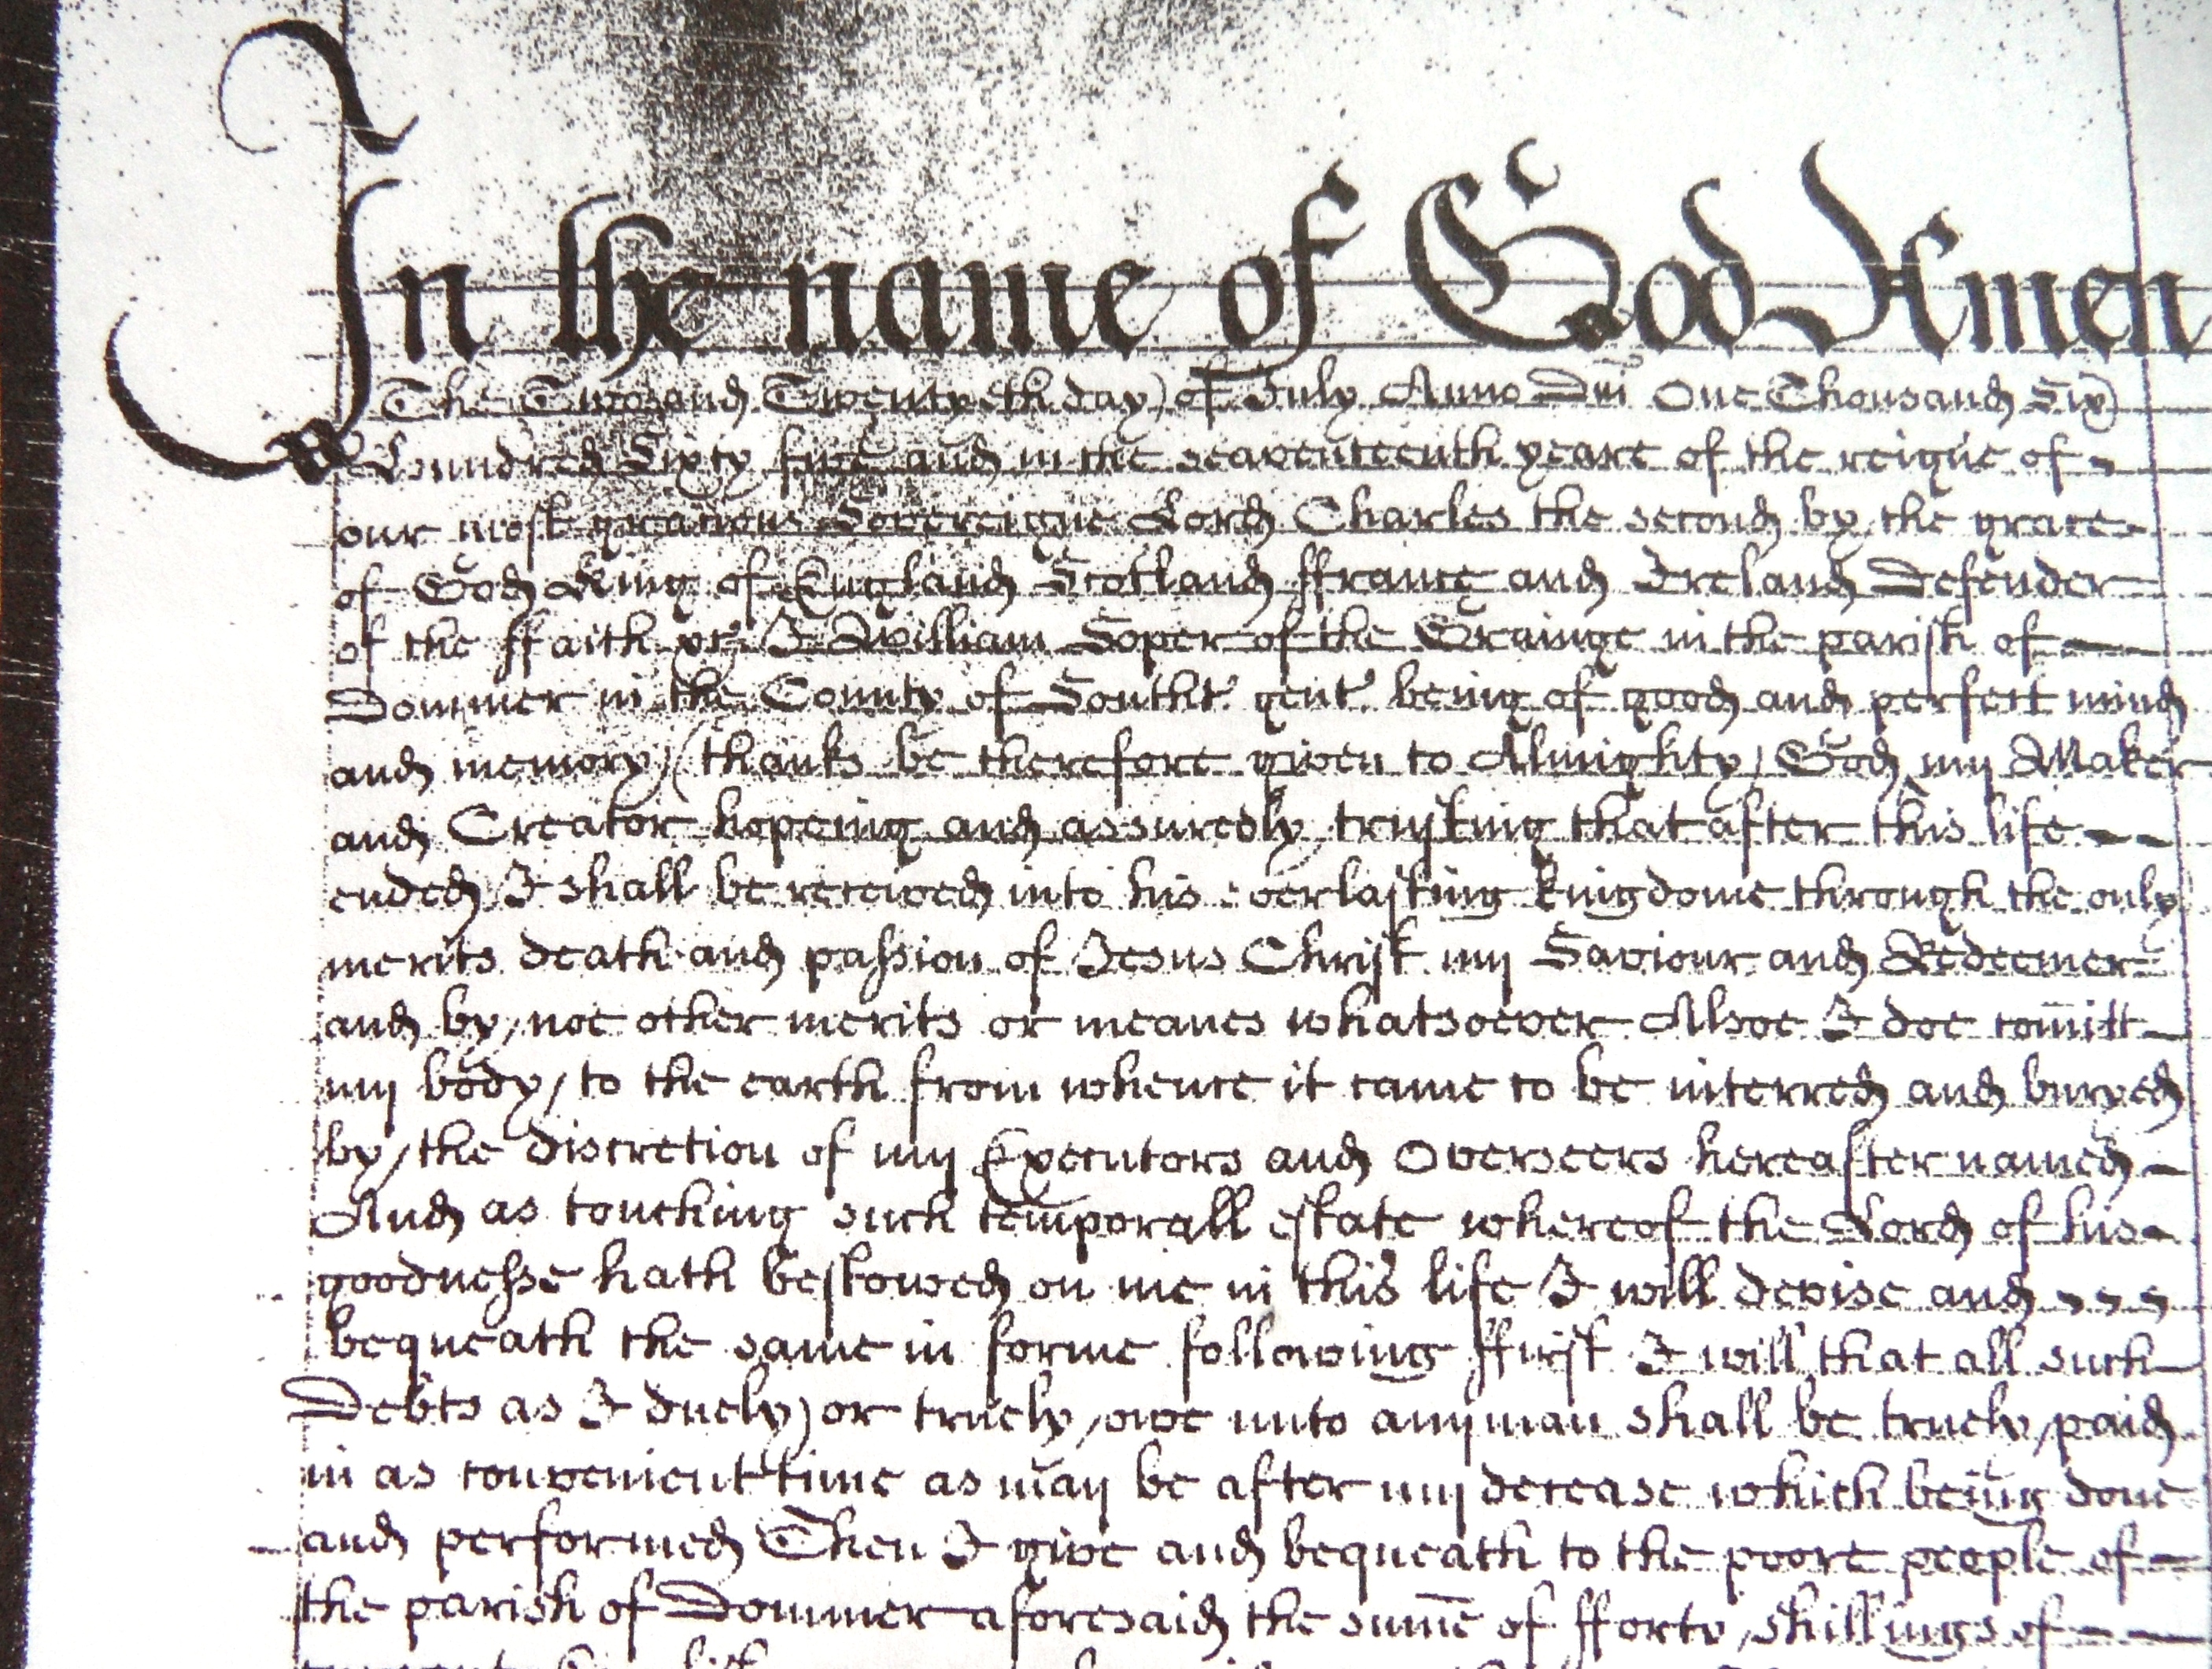 In the name of God Amen
The Two and Twentyeth day of July Anno Dm̄ One Thousand Six
Hundred Sixty five and in the seaventeenth yeare of the reigne of
our most gracious Sovereigne Lord Charles the second by the grace
of God King of England Scotland ffrance and Ireland Defender
of the ffaith &c I William Soper of the Grainge in the parish of
Dommer in the County of Southt. gent. being of good and perfect mind
and memory (thanks be therefore given to Almighty God my Maker
and Creator hopeing and assuredly trusting that after this life
ended I shall be received into his everlasting kingdome through the only
merits death and passion of Jesus Christ my Saviour and Redeemer
and by noe other merits or meanes whatsoever Alsoe I doe com̄itt
my body to the earth from whence it came to be interred and buryed
by the discretion of my Executors and Overseers hereafter named
And as touching such temporall estate whereof the Lord of his
goodnesse hath bestowed on me in this life I will devise and
bequeath the same in forme following ffirst I will that all such
Debts as I duely or truely owe unto any man shall be truely paid
in as convenient time as may be after my decease which being done
and performed Then I give and bequeath to the poore people of
the parish of Dommer aforesaid the sum̄e of fforty shillings of